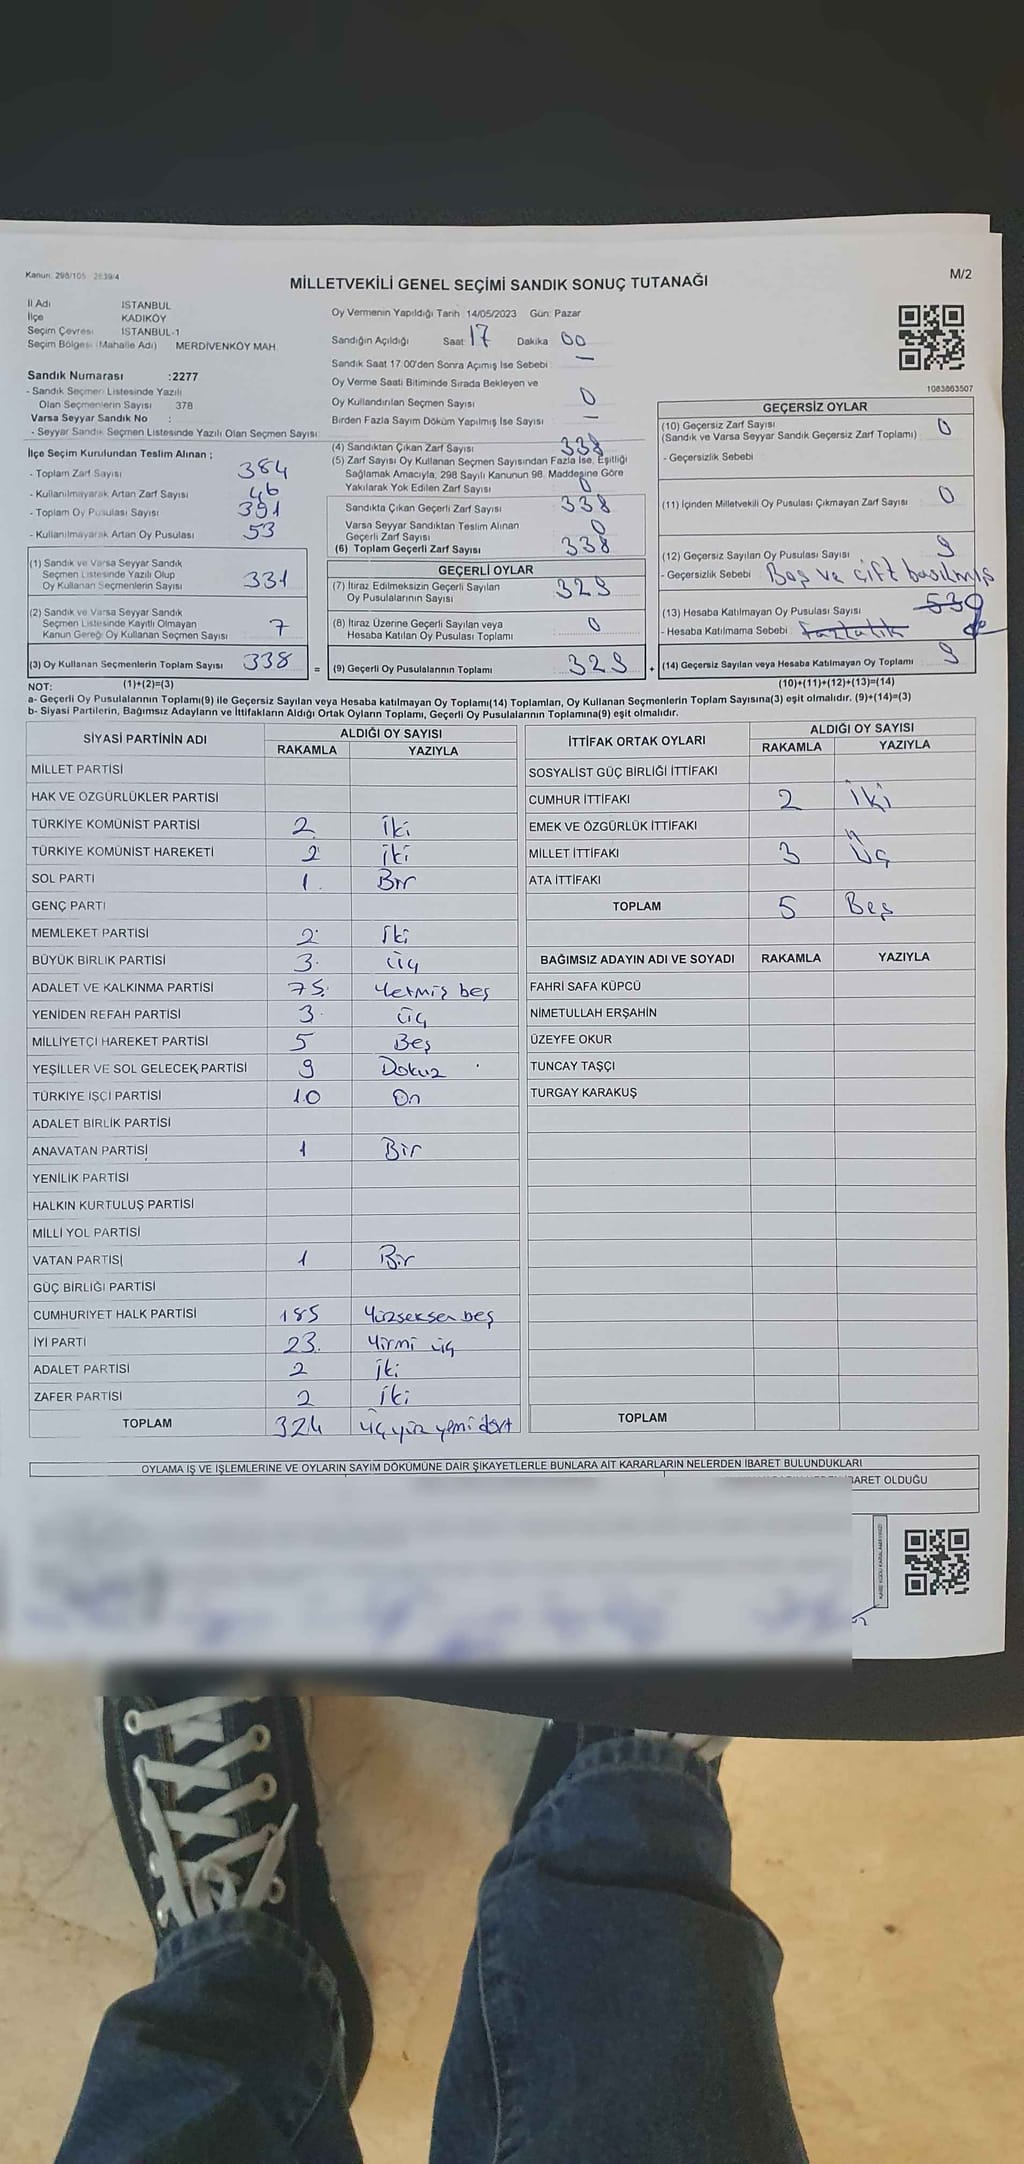 Kanun: 298/105 2839/4
MİLLETVEKİLİ GENEL SEÇİMİ SANDIK SONUÇ TUTANAĞI
M/2
İl Adı İSTANBUL
İlçe KADIKÖY
Seçim Çevresi İSTANBUL-1
Seçim Bölgesi (Mahalle Adı) MERDİVENKÖY MAH.
Sandık Numarası :2277
- Sandık Seçmen Listesinde Yazılı
Olan Seçmenlerin Sayısı 378
Varsa Seyyar Sandık No :
- Seyyar Sandık Seçmen Listesinde Yazılı Olan Seçmen Sayısı
İlçe Seçim Kurulundan Teslim Alınan ;
- Toplam Zarf Sayısı 384
- Kullanılmayarak Artan Zarf Sayısı 46
- Toplam Oy Pusulası Sayısı 391
- Kullanılmayarak Artan Oy Pusulası 53
(1) Sandık ve Varsa Seyyar Sandık
Seçmen Listesinde Yazılı Olup
Oy Kullanan Seçmenlerin Sayısı 331
(2) Sandık ve Varsa Seyyar Sandık
Seçmen Listesinde Kayıtlı Olmayan
Kanun Gereği Oy Kullanan Seçmen Sayısı 7
(3) Oy Kullanan Seçmenlerin Toplam Sayısı 338
Oy Vermenin Yapıldığı Tarih :14/05/2023 Gün: Pazar
Sandığın Açıldığı Saat 17 Dakika 00
Sandık Saat 17.00'den Sonra Açımış İse Sebebi : —
Oy Verme Saati Bitiminde Sırada Bekleyen ve
Oy Kullandırılan Seçmen Sayısı 0
Birden Fazla Sayım Döküm Yapılmış İse Sayısı —
(4) Sandıktan Çıkan Zarf Sayısı 338
(5) Zarf Sayısı Oy Kullanan Seçmen Sayısından Fazla İse, Eşitliği
Sağlamak Amacıyla, 298 Sayılı Kanunun 98. Maddesine Göre
Yakılarak Yok Edilen Zarf Sayısı 0
Sandıkta Çıkan Geçerli Zarf Sayısı 338
Varsa Seyyar Sandıktan Teslim Alınan
Geçerli Zarf Sayısı 0
(6) Toplam Geçerli Zarf Sayısı 338
GEÇERLİ OYLAR
(7) İtiraz Edilmeksizin Geçerli Sayılan
Oy Pusulalarının Sayısı 329
(8) İtiraz Üzerine Geçerli Sayılan veya
Hesaba Katılan Oy Pusulası Toplamı 0
= (9) Geçerli Oy Pusulalarının Toplamı 329 +
1083863507
GEÇERSİZ OYLAR
(10) Geçersiz Zarf Sayısı 0
(Sandık ve Varsa Seyyar Sandık Geçersiz Zarf Toplamı)
- Geçersizlik Sebebi
(11) İçinden Milletvekili Oy Pusulası Çıkmayan Zarf Sayısı 0
(12) Geçersiz Sayılan Oy Pusulası Sayısı 9
- Geçersizlik Sebebi Boş ve çift basılmış
(13) Hesaba Katılmayan Oy Pusulası Sayısı
- Hesaba Katılmama Sebebi : Fazlalık
(14) Geçersiz Sayılan veya Hesaba Katılmayan Oy Toplamı 9
NOT: (1)+(2)=(3) (10)+(11)+(12)+(13)=(14)
a- Geçerli Oy Pusulalarının Toplamı(9) ile Geçersiz Sayılan veya Hesaba katılmayan Oy Toplamı(14) Toplamları, Oy Kullanan Seçmenlerin Toplam Sayısına(3) eşit olmalıdır. (9)+(14)=(3)
b- Siyasi Partilerin, Bağımsız Adayların ve İttifakların Aldığı Ortak Oyların Toplamı, Geçerli Oy Pusulalarının Toplamına(9) eşit olmalıdır.
SİYASİ PARTİNİN ADI ALDIĞI OY SAYISI
RAKAMLA YAZIYLA
MİLLET PARTİSİ
HAK VE ÖZGÜRLÜKLER PARTİSİ
TÜRKİYE KOMÜNİST PARTİSİ 2 İki
TÜRKİYE KOMÜNİST HAREKETİ 2 İki
SOL PARTİ 1. Bir
GENÇ PARTİ
MEMLEKET PARTİSİ 2 İki
BÜYÜK BİRLİK PARTİSİ 3. üç
ADALET VE KALKINMA PARTİSİ 75. Yetmiş beş
YENİDEN REFAH PARTİSİ 3. üç
MİLLİYETÇİ HAREKET PARTİSİ 5 Beş
YEŞİLLER VE SOL GELECEK PARTİSİ 9 Dokuz
TÜRKİYE İŞÇİ PARTİSİ 10 On
ADALET BİRLİK PARTİSİ
ANAVATAN PARTİSİ 1 Bir
YENİLİK PARTİSİ
HALKIN KURTULUŞ PARTİSİ
MİLLİ YOL PARTİSİ
VATAN PARTİSİ 1 Bir
GÜÇ BİRLİĞİ PARTİSİ
CUMHURİYET HALK PARTİSİ 185 Yüzseksen beş
İYİ PARTİ 23. Yirmi üç
ADALET PARTİSİ 2 İki
ZAFER PARTİSİ 2 İki
TOPLAM 324 üçyüz yirmi dört
İTTİFAK ORTAK OYLARI ALDIĞI OY SAYISI
RAKAMLA YAZIYLA
SOSYALİST GÜÇ BİRLİĞİ İTTİFAKI
CUMHUR İTTİFAKI 2 İki
EMEK VE ÖZGÜRLÜK İTTİFAKI
MİLLET İTTİFAKI 3 Üç
ATA İTTİFAKI
TOPLAM 5 Beş
BAĞIMSIZ ADAYIN ADI VE SOYADI RAKAMLA YAZIYLA
FAHRİ SAFA KÜPCÜ
NİMETULLAH ERŞAHİN
ÜZEYFE OKUR
TUNCAY TAŞÇI
TURGAY KARAKUŞ
TOPLAM
OYLAMA İŞ VE İŞLEMLERİNE VE OYLARIN SAYIM DÖKÜMÜNE DAİR ŞİKAYETLERLE BUNLARA AİT KARARLARIN NELERDEN İBARET BULUNDUKLARI
BARET OLDUĞU